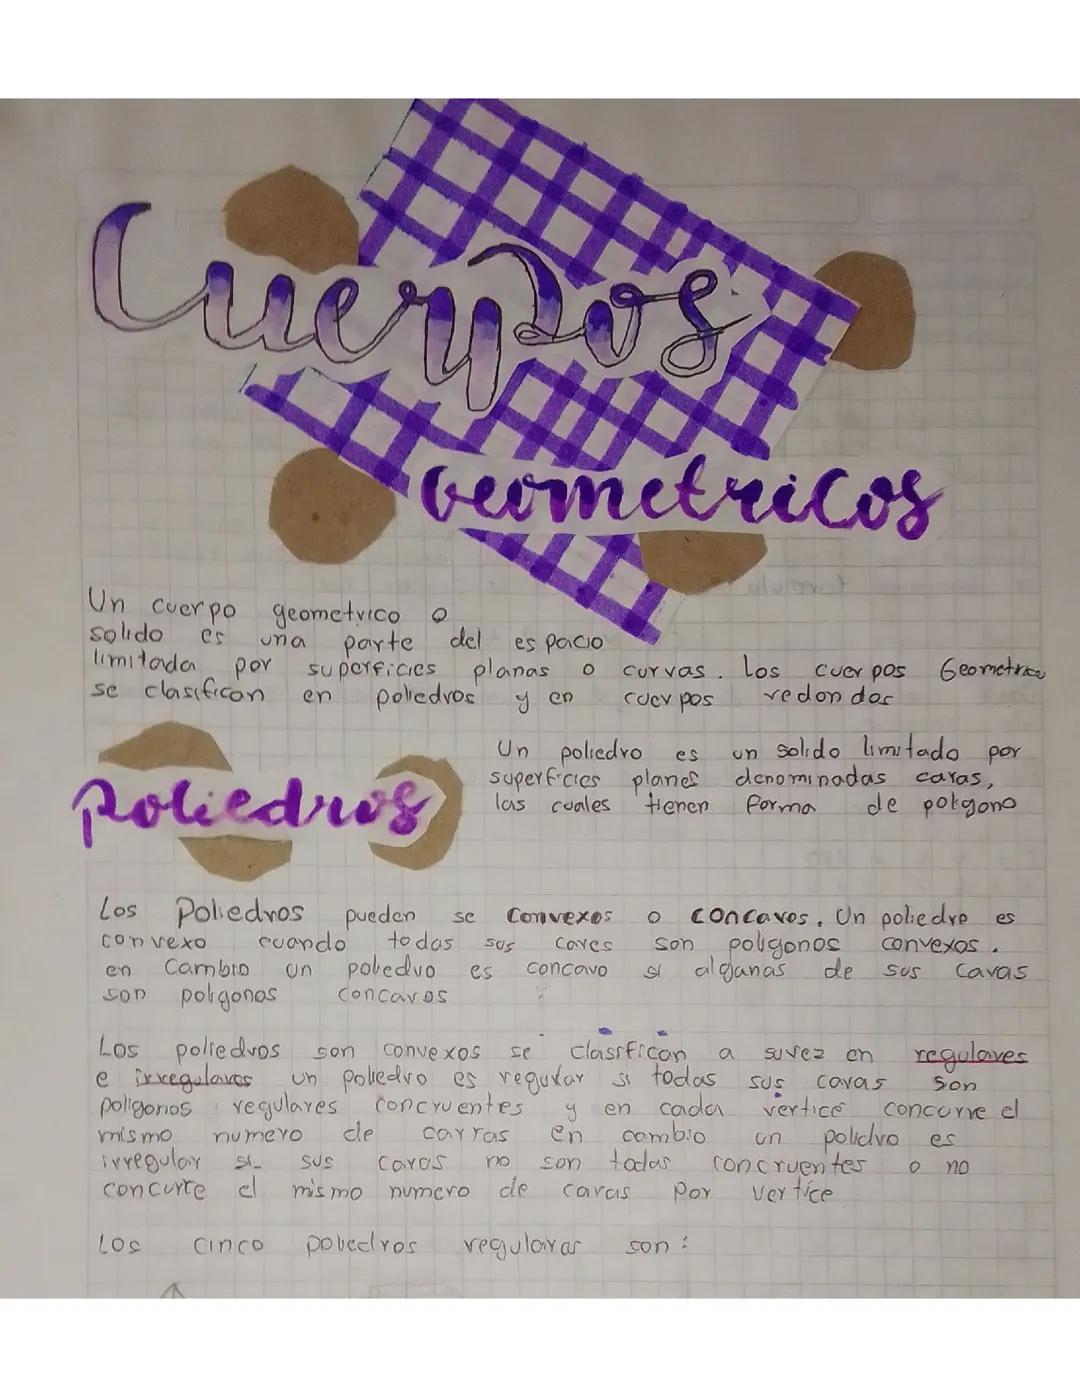 Cuerpos
Geometricos
Un cuerpo geometrico o
solido es una parte del espacio
limitada por superficies planas o curvas. Los cuerpos Geometricos
se clasifican en poliedros y en cuerpos redondos
Poliedros
Un poliedro es un solido limitado por
superficies planes denominadas caras,
las cuales tienen forma de poligono
Los Poliedros pueden se convexos o concavos. Un poliedro es
convexo cuando todas sus caves son poligonos convexos.
en cambio un poliedro es concavo si algunas de sus caras
son poligonos concavos
Los poliedros son convexos se clasifican a suvez en regulares
e irregulares un poliedro es regular si todas sus caras son
poligonos regulares concruentes y en cada vertice concurre el
mismo numero de carras en cambio un polidro es
irregular si sus caras no son todas concruentes o no
concurre el mismo numero de caras por vertice
Los cinco poliedros regulares son: